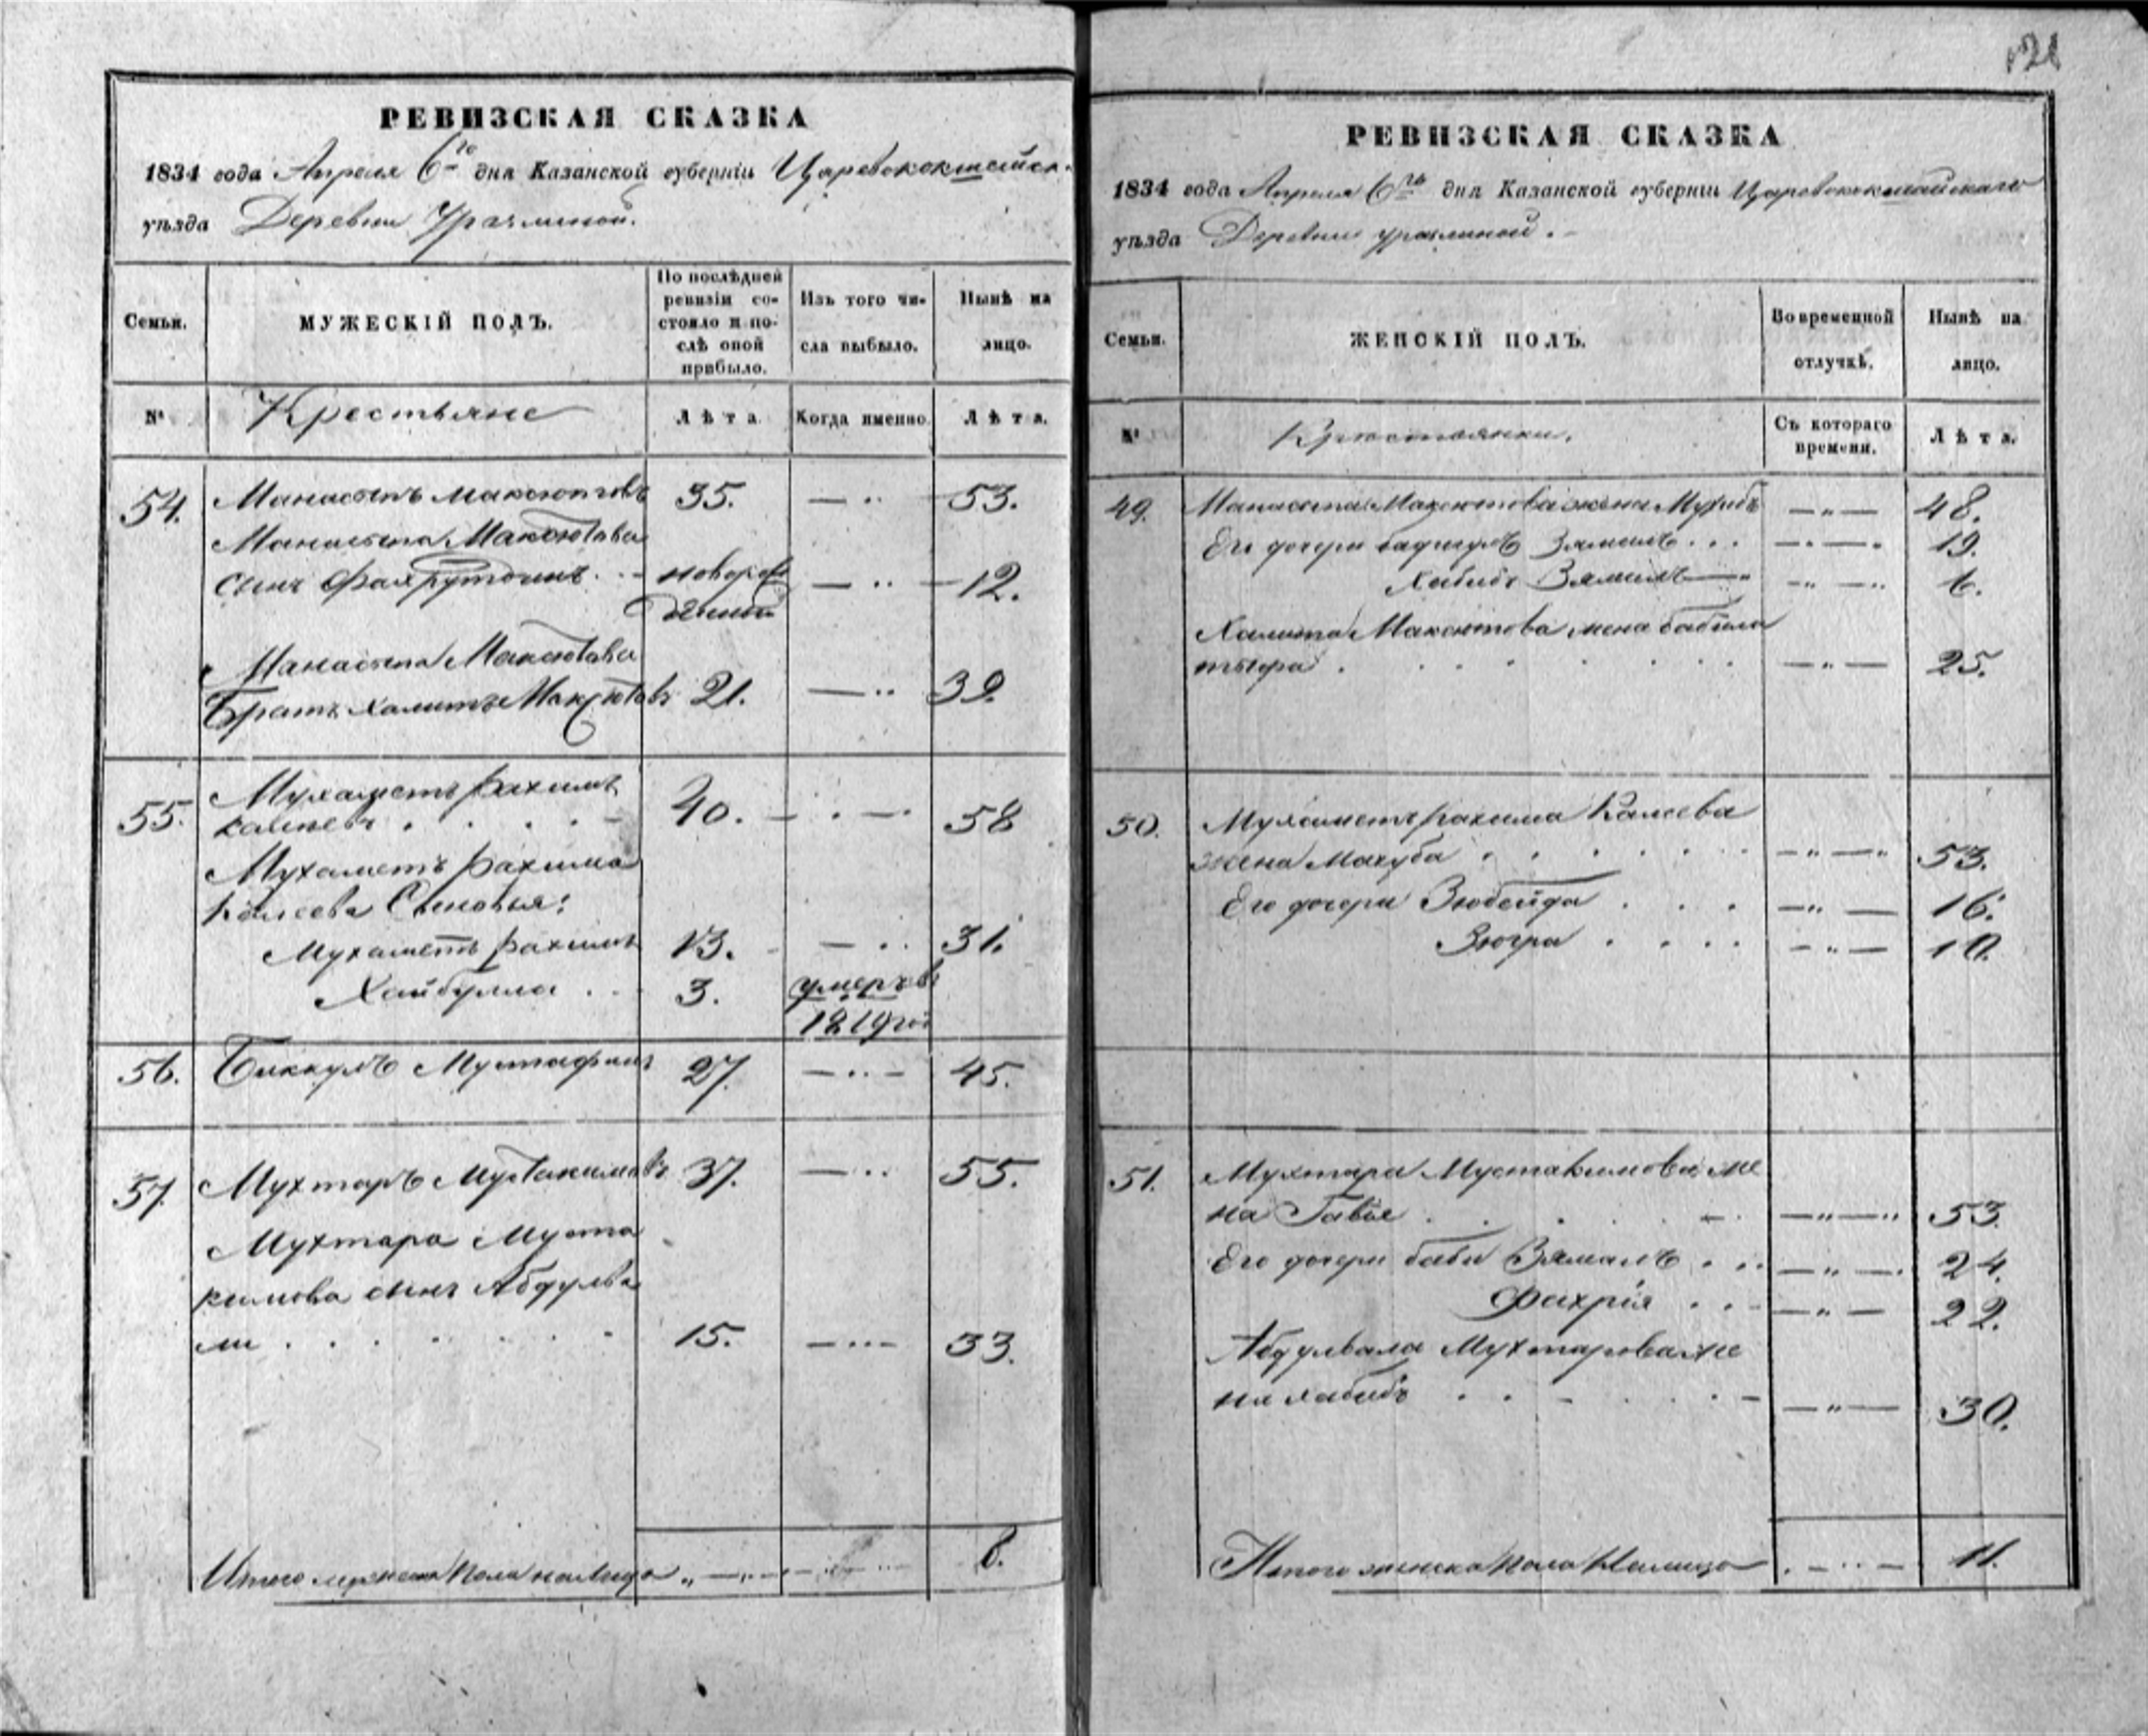 РЕВИЗСКАЯ СКАЗКА
1834 года Апреля 6го дня Казанской губерніи Царевококшайск.
уѣзда Деревни Уразлиной.
Семьи.
МУЖЕСКІЙ ПОЛЪ.
По послѣдней
ревизіи со-
стояло и по-
слѣ оной
прибыло.
Изъ того чи-
сла выбыло.
Нынѣ на
лицо.
№
Крестьяне
Лѣта.
Когда именно.
Лѣта.
54. Манасыпъ Максютовъ 35. 53.
Манасыпа Максютова
сынъ Фахрутдинъ новорож 12.
денный
Манасыпа Максютова
Братъ Халитъ Максютовъ 21. 39.
55. Мухаметь рахимъ
Калеевъ 40. 58
Мухаметъ рахима
Калеева Сыновья:
Мухаметъ рахимъ 13. 31.
Хайбулла 3. умеръ въ
1819 год
56. Биккулъ Мустафинъ 27. 45.
57. Мухтаръ Мустакимовъ 37. 55.
Мухтара Муста
кимова сынъ Абдулва
ли 15. 33.
Итого мужеска пола на лицо 8.
121
РЕВИЗСКАЯ СКАЗКА
1834 года Апреля 6го дня Казанской губерніи Царевококшайскаго
уѣзда Деревни уразлиной.
Семьи.
ЖЕНСКІЙ ПОЛЪ.
Во временной
отлучкѣ.
Нынѣ на
лицо.
№
Крестьянки.
Съ котораго
времени.
Лѣта.
49. Манасыпа Максютова жена 48.
Его дочери Зямалъ 19.
Хабибъ Зямалъ 6.
Халита Максютова жена
25.
50. Мухаметъ рахима Калеева
жена Махуба 53.
Его дочери Зюбейда 16.
Зюгра 10.
51. Мухтара Мустакимова же
на 53.
Его дочери биби Зямалъ 24.
Фахрія 22.
Абдулвали Мухтарова же
на хабибъ 30.
Итого женска пола на лицо 11.